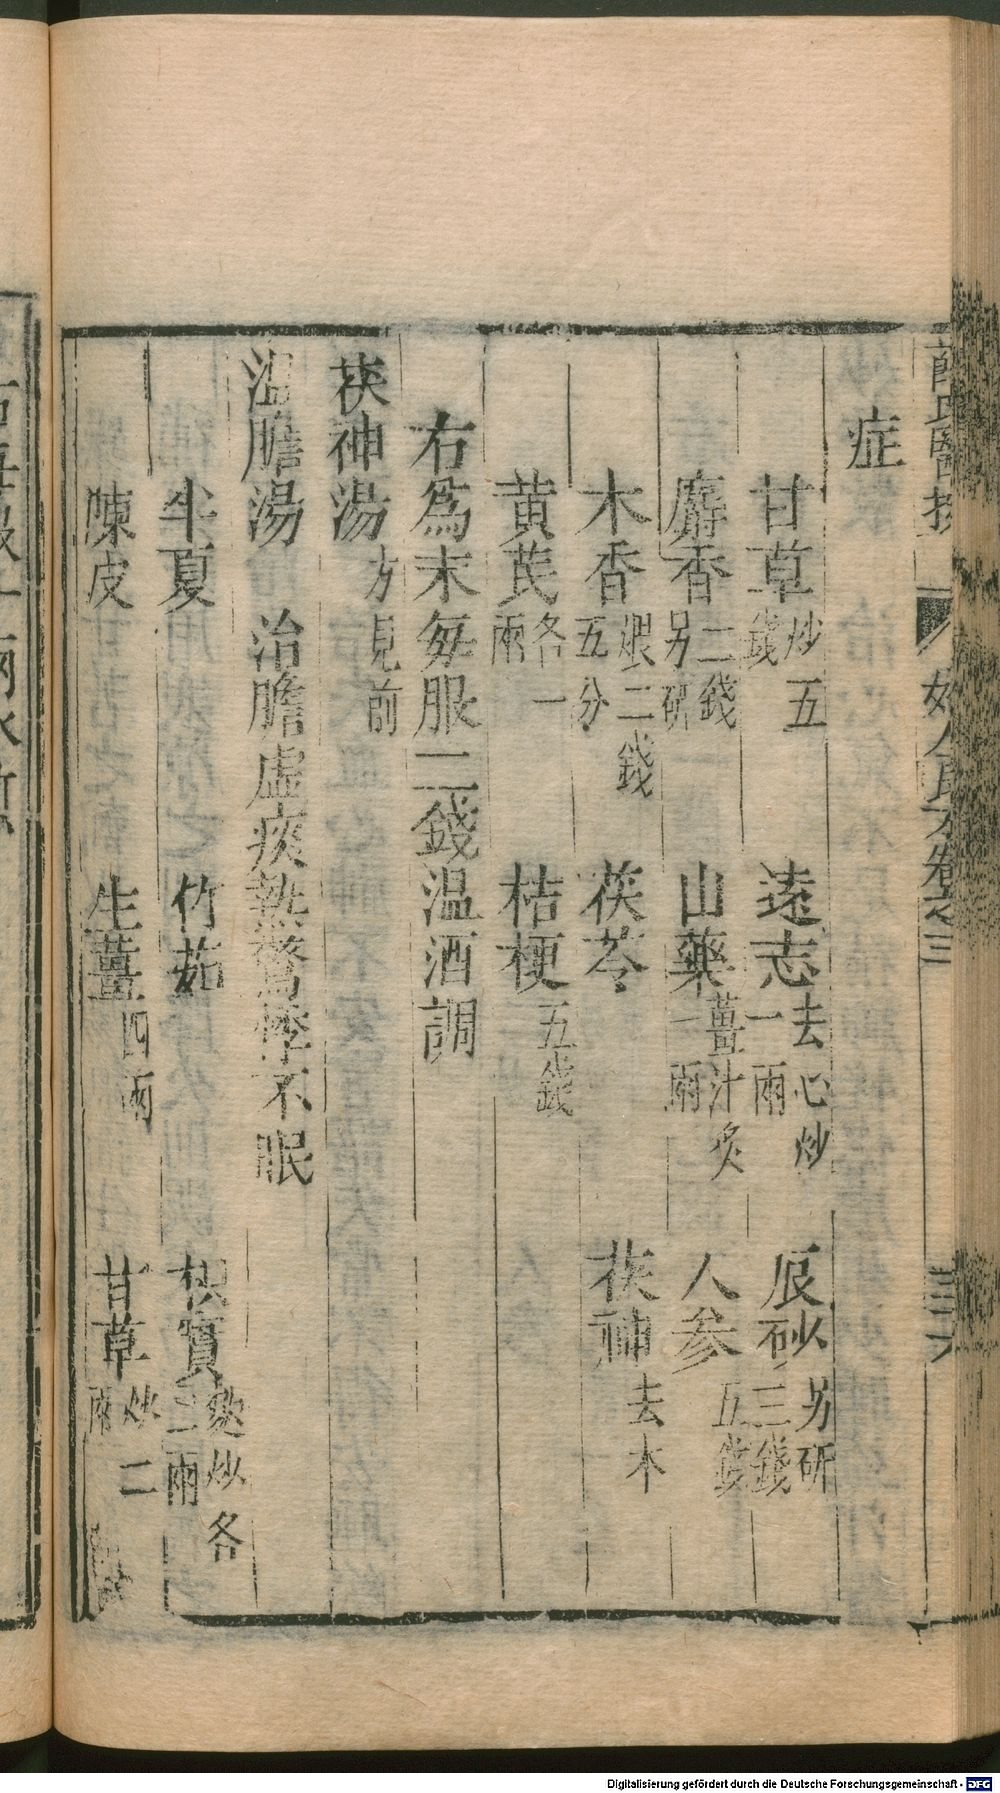 症
甘草炒五錢 遠志去心炒一兩 辰砂另研三錢
麝香二錢另研 山藥薑汁炙一兩 人參五錢
木香煨二錢五分 茯苓 茯神去木
黃芪各一兩 桔梗五錢
右為末每服二錢温酒調
茯神湯方見前
温膽湯 治膽虛痰熱驚悸不眠
半夏 竹茹 枳實麩炒各二兩
陳皮 生薑四兩 甘草炒二兩
婦人良方卷之三
三十六
Digitalisierung gefördert durch die Deutsche Forschungsgemeinschaft - DFG